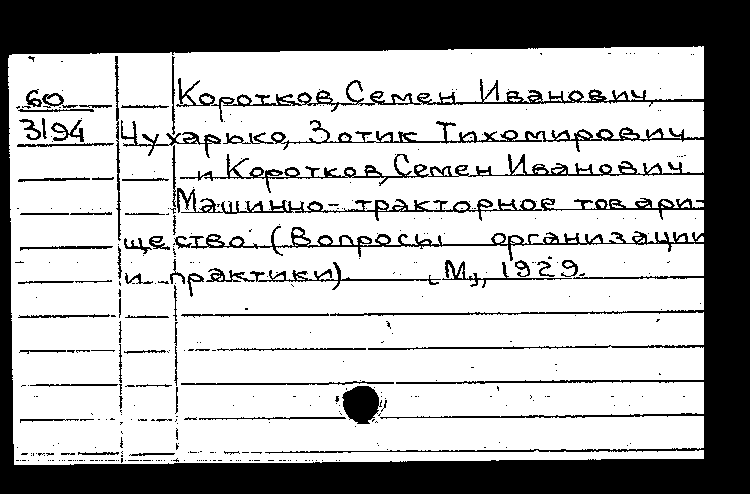 60 Коротков, Семен Иванович,
3194 Чухарько, Зотик Тихомирович
и Коротков, Семен Иванович
Машинно-тракторное товари-
щество. (Вопросы организации
и практики). [М], 1929.